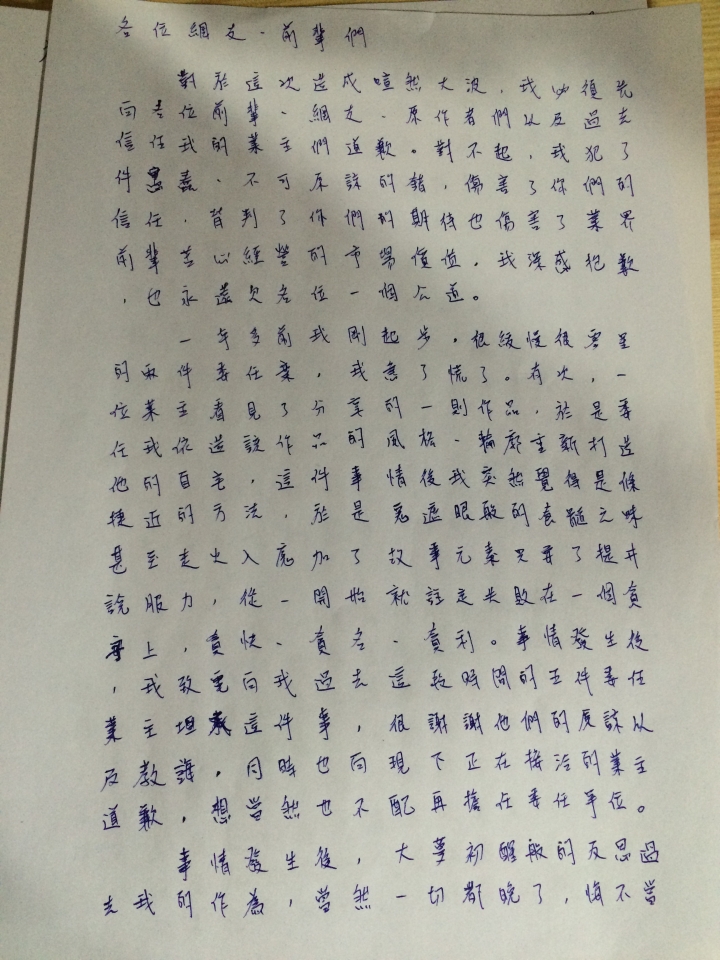 各位網友、前輩們
對於這次造成喧然大波，我必須先
向各位前輩、網友、原作者們以及過去
信任我的業主們道歉。對不起，我犯了
件愚蠢、不可原諒的錯，傷害了你們的
信任，背判了你們的期待也傷害了業界
前輩苦心經營的市場價值，我深感抱歉
，也永遠欠各位一個公道。
一年多前我剛起步，很緩慢後零星
的兩件委任案，我急了慌了。有次，一
位業主看見了分享的一則作品，於是委
任我依造該作品的風格、輪廓重新打造
他的自宅，這件事情後我突然覺得是條
捷近的方法，於是 遮眼般的食髓之味
甚至走火入魔加了故事元素只要了提升
說服力，從一開始就註定失敗在一個貪
字上，貪快、貪名、貪利。事情發生後
，我致電向我過去這段時間的五件委任
業主坦承這件事，很謝謝他們的原諒以
及教誨，同時也向現下正在接洽的業主
道歉，想當然也不配再擔任委任單位。
事情發生後，大夢初醒般的反思過
去我的作為，當然一切都晚了，悔不當